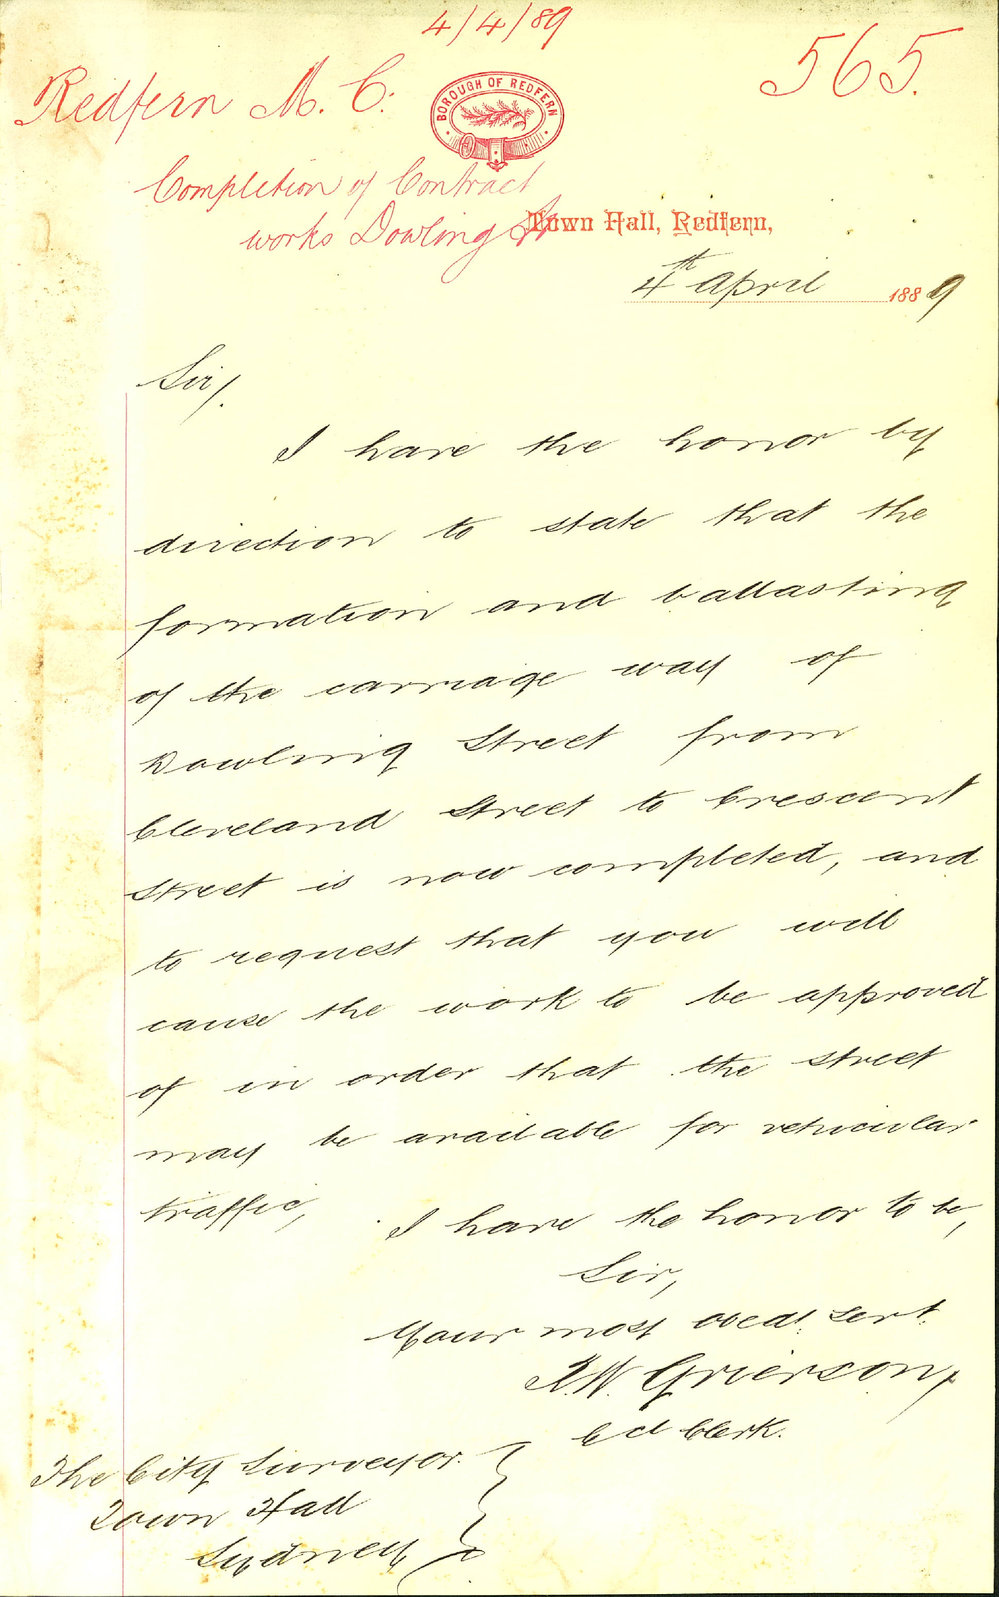 4/4/89
565.
Redfern M. C:
BOROUGH OF REDFERN
Completion of Contract
works Dowling St
Town Hall, Redfern,
4th April 1889
Sir/.
I have the honor by
direction to state that the
formation and ballasting
of the carriage way of
Dowling Street from
Cleveland Street to Crescent
Street is now completed, and
to request that you will
cause the work to be approved
of in order that the street
may be available for vehicular
traffic,
I have the honor to be,
Sir,
Your most obedt. servt.
Grierson,
Cl Clerk.
The City Surveyor.
Town Hall
Sydney